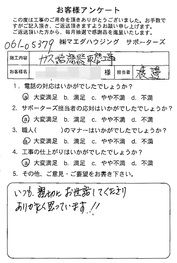 お客様アンケート
この度は工事のご用命を頂きありがとうございます。お手数ですが
ご記入頂き、ご返送頂きますようお願い申し上げます。
ご返送頂いた方から、毎月抽選で感謝品を進呈いたします。
㈱マエダハウジング サポーターズ
施工内容 ガス給湯器取替工事
お客様名 様 担当者 渡邊
1. 電話の対応はいかがでしたでしょうか?
a 大変満足 b. 満足 c. やや不満 d. 不満
2. サポーターズ担当者の対応はいかがでしたでしょうか?
a 大変満足 b. 満足 c. やや不満 d. 不満
3. 職人( )のマナーはいかがでしたでしょうか?
a 大変満足 b. 満足 c. やや不満 d. 不満
4. 工事の仕上がりはいかがでしたでしょうか?
a 大変満足 b. 満足 c. やや不満 d. 不満
5. その他、ご意見・ご要望をお聞かせ下さい。
いつも、親切にお世話してくださり
ありがたく思っています!!